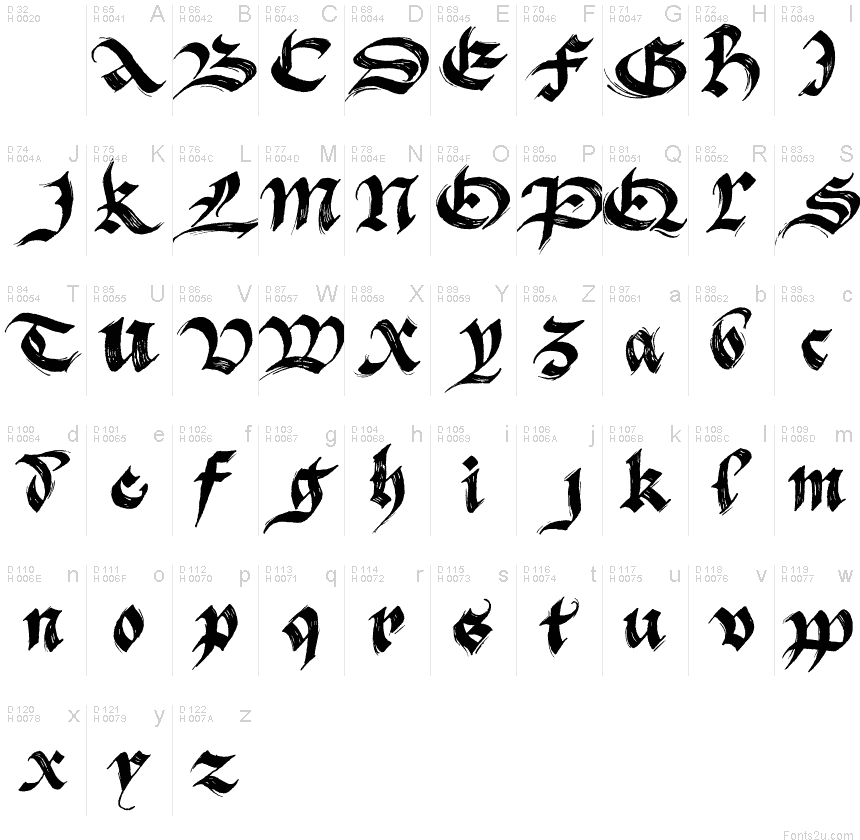 D 32 D 65 A D 66 B D 67 C D 68 D D 69 E D 70 F D 71 G D 72 H D 73 I
H 0020 H 0041 H 0042 H 0043 H 0044 H 0045 H 0046 H 0047 H 0048 H 0049
A B C D E F G H I
D 74 J D 75 K D 76 L D 77 M D 78 N D 79 O D 80 P D 81 Q D 82 R D 83 S
H 004A H 004B H 004C H 004D H 004E H 004F H 0050 H 0051 H 0052 H 0053
J K L M N O P Q R S
D 84 T D 85 U D 86 V D 87 W D 88 X D 89 Y D 90 Z D 97 a D 98 b D 99 c
H 0054 H 0055 H 0056 H 0057 H 0058 H 0059 H 005A H 0061 H 0062 H 0063
T U V W X Y Z a b c
D 100 d D 101 e D 102 f D 103 g D 104 h D 105 i D 106 j D 107 k D 108 l D 109 m
H 0064 H 0065 H 0066 H 0067 H 0068 H 0069 H 006A H 006B H 006C H 006D
d e f g h i j k l m
D 110 n D 111 o D 112 p D 113 q D 114 r D 115 s D 116 t D 117 u D 118 v D 119 w
H 006E H 006F H 0070 H 0071 H 0072 H 0073 H 0074 H 0075 H 0076 H 0077
n o p q r s t u v w
D 120 x D 121 y D 122 z
H 0078 H 0079 H 007A
x y z
Fonts2u.com